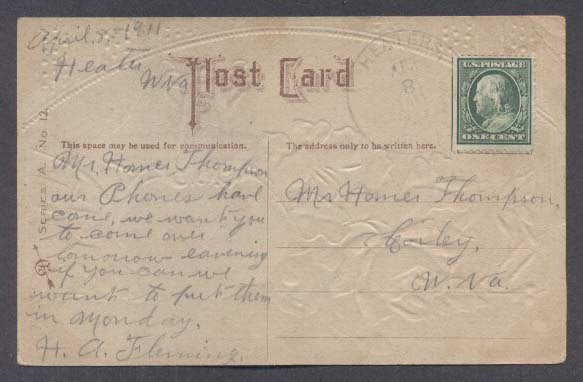 April, 8, - 1911.
Heater,
W Va
Post Card
HEATERS
APR
8
U.S. POSTAGE
ONE CENT
SERIES A. No 12.
This space may be used for communication.
The address only to be written here.
Mr. Homer Thompson
our Phones have
come, we want you
to come over
tomorrow eavening
if you can we
want to put them
in Monday.
H. A. Fleming.
Mr Homer Thompson,
Corley,
W. Va.